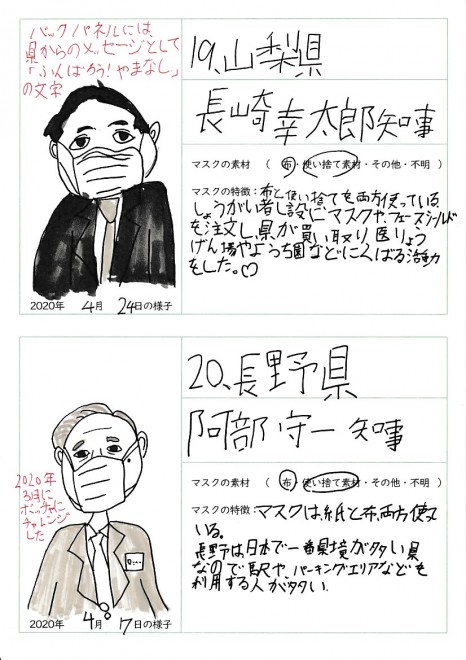 バックパネルには、
県からのメッセージとして
「ふんばろう!やまなし」
の文字
2020年 4月 24日の様子
19、山梨県
長崎幸太郎知事
マスクの素材 ( 布・使い捨て素材・その他・不明 )
マスクの特徴:布と使い捨てを両方使っている
しょうがい者し設にマスクや、フェースシールド
を注文し、県が買い取り医りょう
げん場やようち園などにくばる活動
をした。♡
2020年
3月に
ボッチャに
チャレンジ
した
2020年 4月 7日の様子
20、長野県
阿部守一知事
マスクの素材 ( 布・使い捨て素材・その他・不明 )
マスクの特徴:マスクは、紙と布、両方使って
いる。
長野は日本で一番県境が多い県
なので駅や、パーキングエリアなども
利用する人が多い.